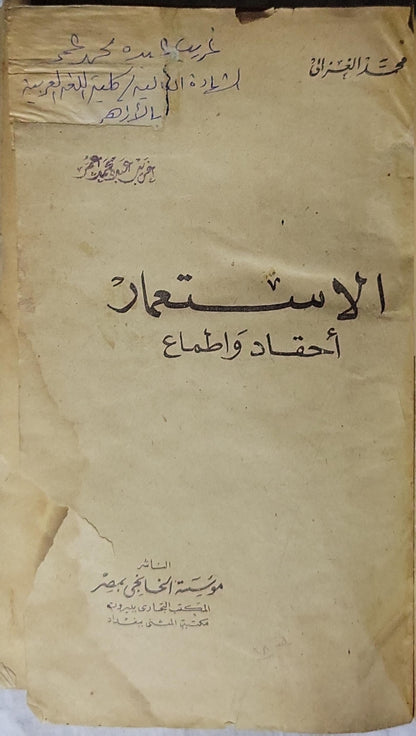 محمد الغزالى
غريب عبده محمد
الشهادة العالية / كلية اللغة العربية
بالأزهر
غريب عبده محمد
الاستعمار
أحقاد وأطماع
الناشر
مؤسسة الخانجى بمصر
المكتب التجارى ببيروت
مكتبة المثنى ببغداد